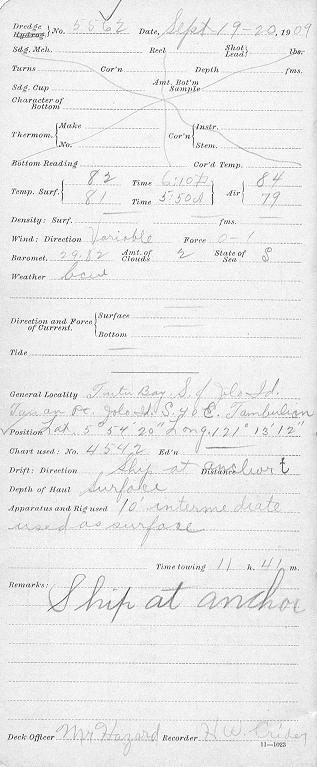 Dredge Hydrog. } No. 5562 Date, Sept 19-20, 1909
Sdg. Mch. Reel Shot Lead } lbs.
Turns Cor'n Depth fms.
Sdg. Cup Amt. Bot'm Sample
Character of Bottom
Thermom. { Make No. Cor'n { Instr. Stem.
Bottom Reading Cor'd Temp.
Temp. Surf. { 82 Time 6:10 P Air { 84
81 Time 5:50 A 79
Density: Surf. fms.
Wind: Direction Variable Force 0-1
Baromet. 29.82 Amt. of Clouds 2 State of Sea S
Weather
Direction and Force of Current. { Surface Bottom
Tide
General Locality Bay, S. of Jolo Id.
Pt. Jolo Id. S. 40 E. Tambulian
Position Lat. 5° 54' 20" Long. 121° 13' 12"
Chart used: No. 4542 Ed'n
Drift: Direction Ship at Distance anchor t
Depth of Haul Surface
Apparatus and Rig used 10' intermediate
used as surface
Time towing 11 h. 41 m.
Remarks:
Ship at anchor
Deck Officer Mr Hazard Recorder H.W. Crider
11—1023